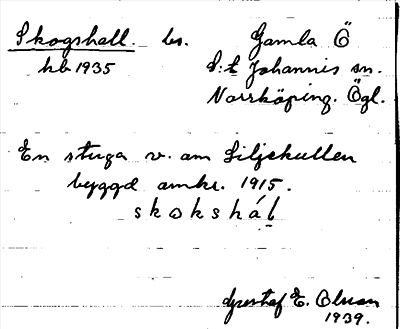 Skogshall. bs. Gamla Ö
kb 1935 S:t Johannis sn.
Norrköping. Ögl.
En stuga v. om Liljekullen
byggd omkr. 1915.
skokshál
Gustaf E. Olsson
1939.